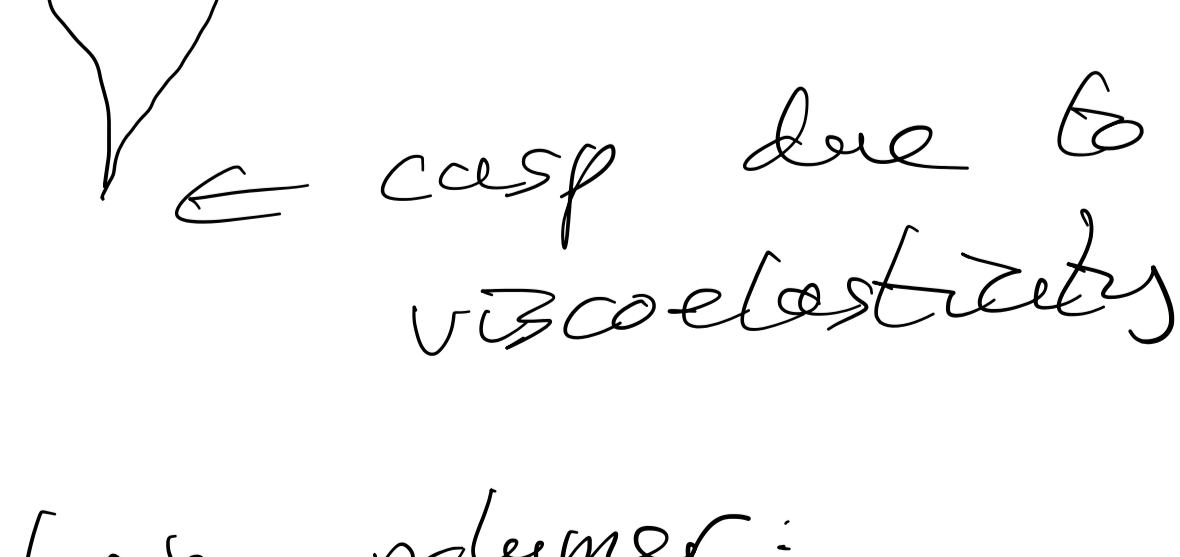 ← casp due to
viscoelasticity
polymer: